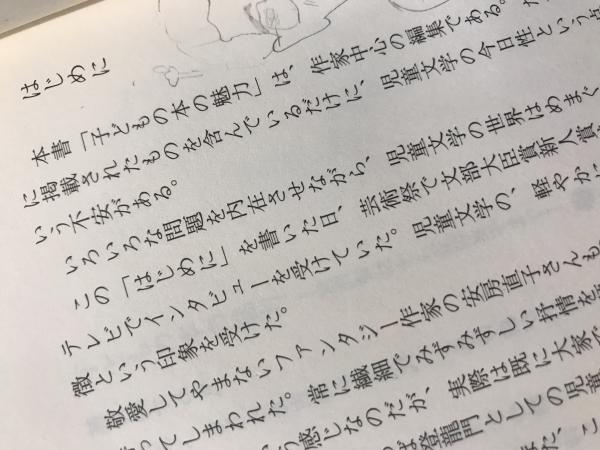 はじめに
本書「子どもの本の魅力」は、作家中心の編集である。
に掲載されたものを含んでいるだけに、児童文学の今日性という点
いう不安がある。
いろいろな問題を内在させながら、児童文学の世界はめまぐ
この「はじめに」を書いた日、芸術祭で文部大臣賞新人賞
テレビでインタビューを受けていた。児童文学の、軽やかに
徴という印象を受けた。
敬愛してやまないファンタジー作家の安房直子さんも、
ってしまわれた。常に繊細でみずみずしい抒情を
う感じなのだが、実際は既に大家で
ば登龍門としての児童
、こ